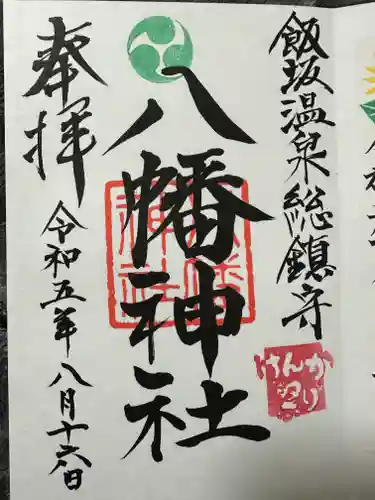 飯坂温泉総鎮守
八幡神社
奉拝
令和五年八月十六日
けんか
祭り